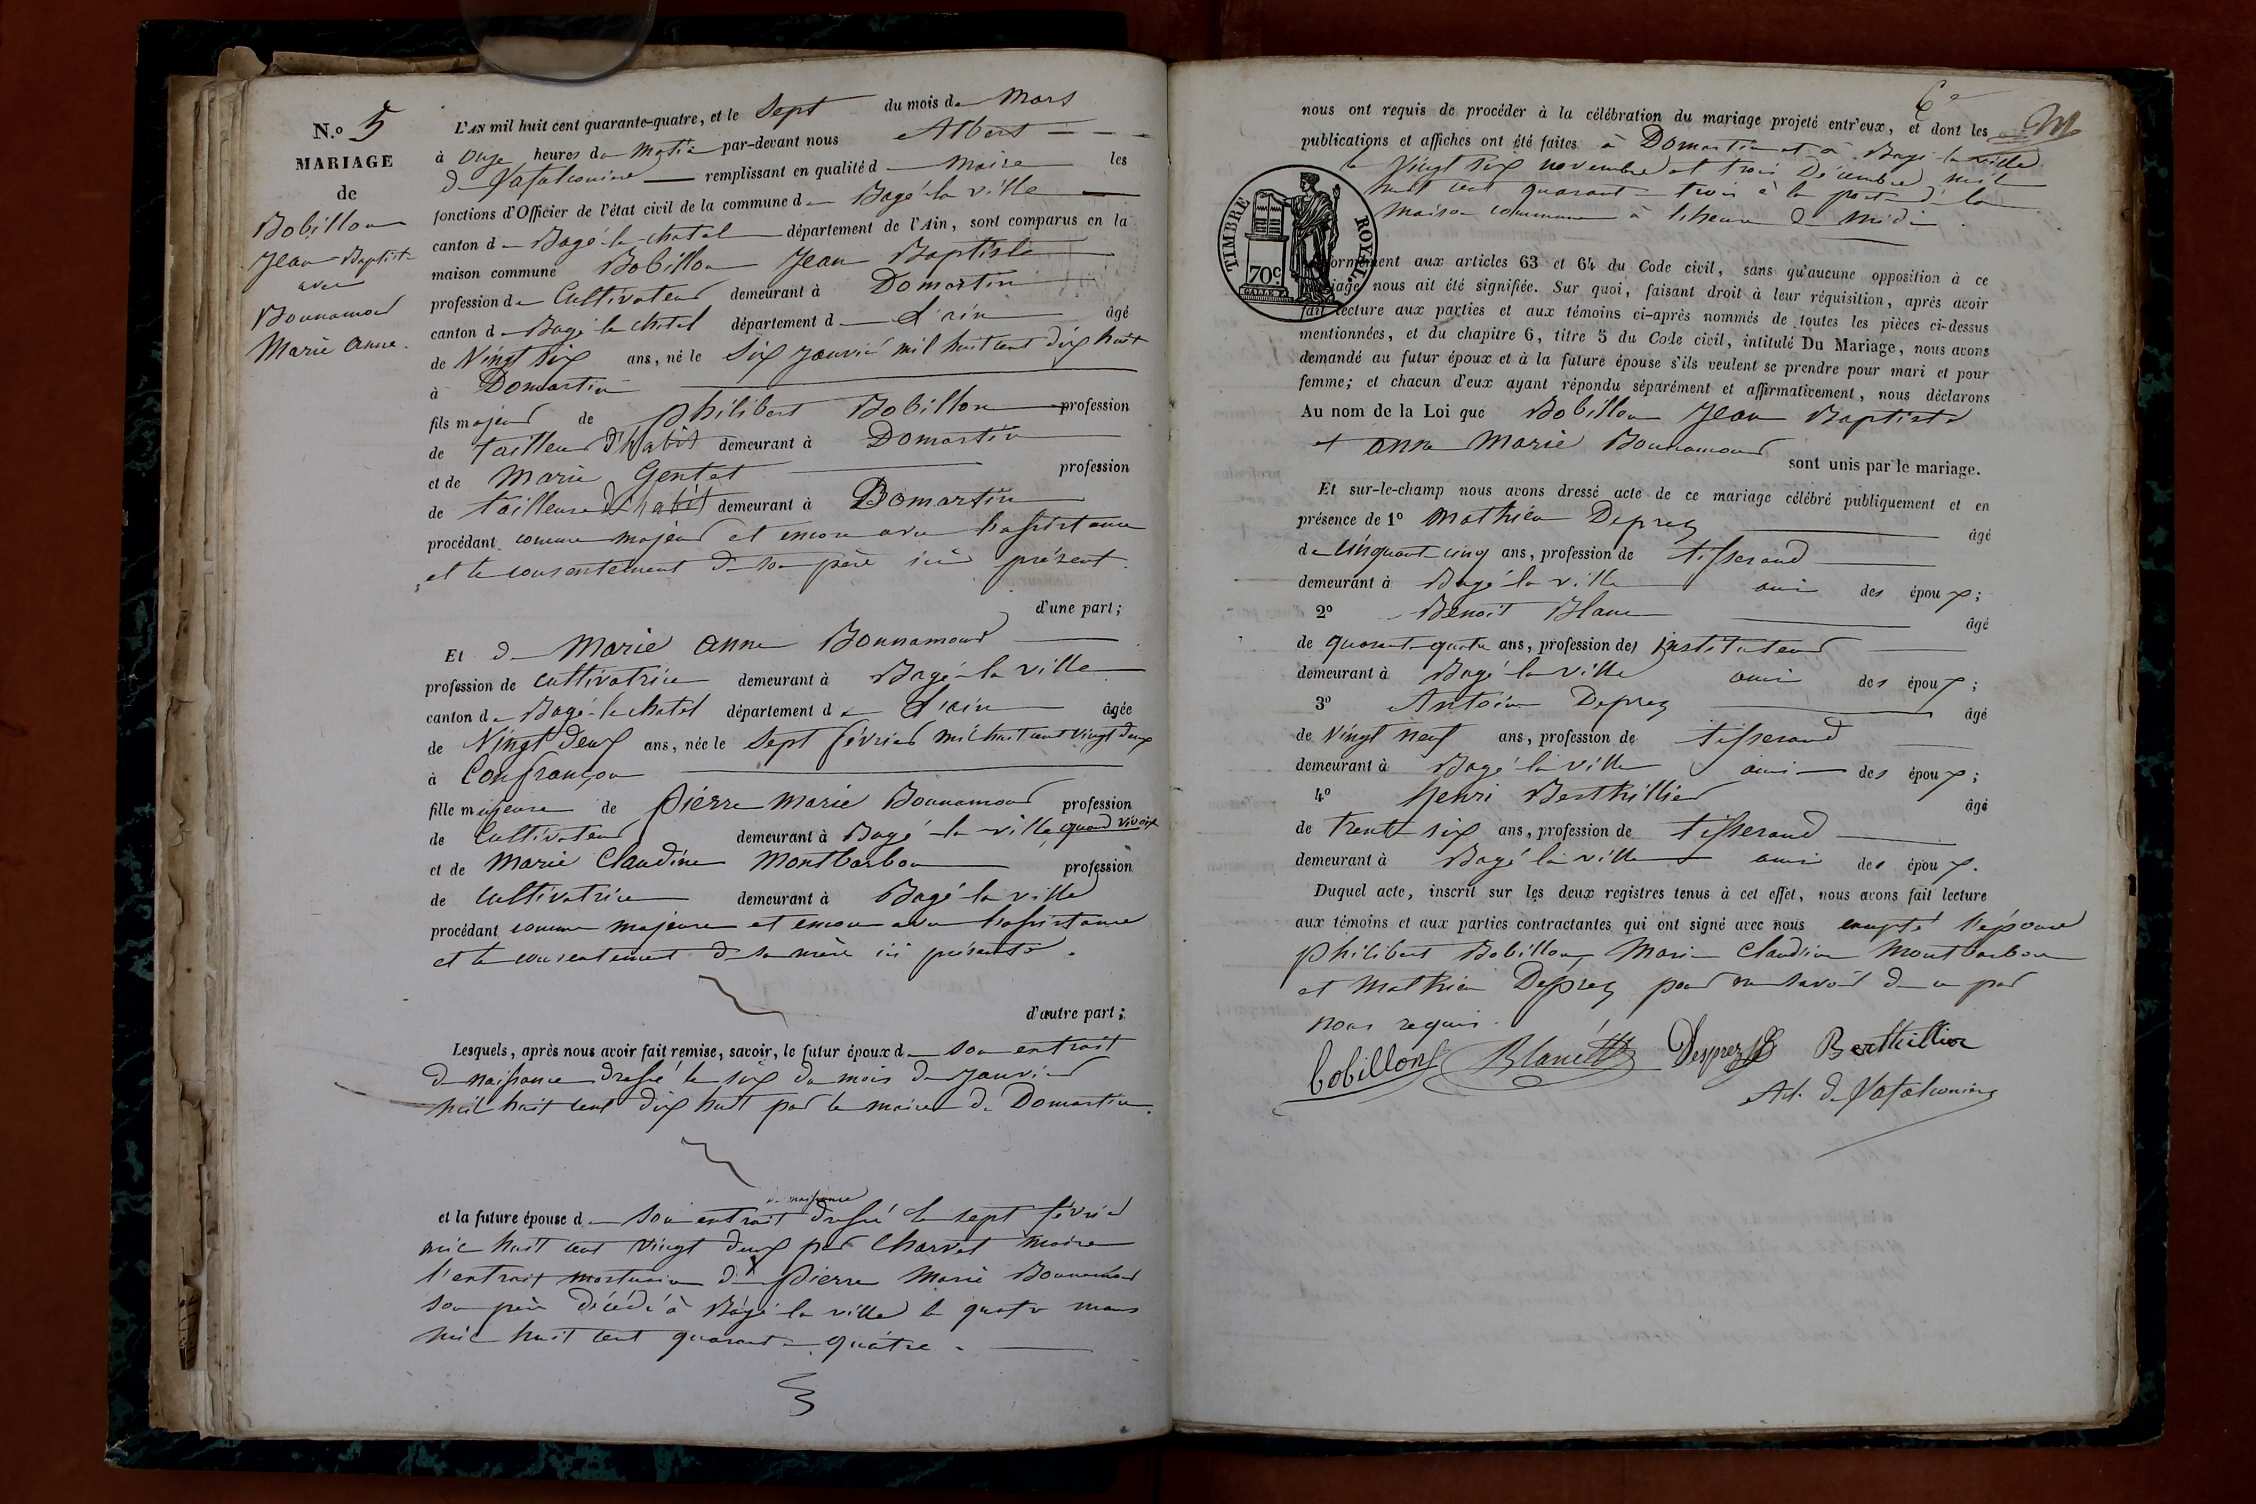 N.º 5
MARIAGE
de
Bobillon
Jean Baptiste
avec
Bonnamour
Marie Anne.
L'AN mil huit cent quarante-quatre, et le Sept du mois de Mars
à onze heures du Matin par-devant nous Albert
de remplissant en qualité de Maire les
fonctions d'Officier de l'état civil de la commune de Bagé la ville
canton de Bagé-le-chatel département de l'Ain, sont comparus en la
maison commune Bobillon Jean Baptiste
profession de Cultivateur demeurant à Domartin
canton de Bagé le chatel département de L'ain âgé
de Vingt six ans, né le Six janvier mil huit cent dix huit
à Domartin
fils majeur de Philibert Bobillon profession
de tailleur d'habit demeurant à Domartin
et de Marie Gentet profession
de tailleuse d'habit demeurant à Domartin
procédant comme majeur et encore avec l'assistance
et le consentement de son père ici présent.
d'une part;
Et de Marie Anne Bonnamour
profession de cultivatrice demeurant à Bagé-la ville
canton de Bagé-le chatel département de L'ain âgée
de Vingt deux ans, née le Sept février mil huit cent vingt deux
à Confrançon
fille majeure de Pierre Marie Bonnamour profession
de Cultivateur demeurant à Bagé-la-ville, quand vivait
et de Marie Claudine Montbarbon profession
de cultivatrice demeurant à Bagé-la ville
procédant comme majeure et encore avec l'assistance
et le consentement de sa mère ici présente.
d'autre part;
Lesquels, après nous avoir fait remise, savoir, le futur époux de son extrait
de naissance dressé le six du mois de janvier
mil huit cent dix huit par le maire de Domartin.
de naissance
et la future épouse de son extrait dressé le sept février
mil huit cent vingt deux par Charvet maire
l'extrait mortuaire de Pierre Marie Bonnamour
son père décédé à Bagé la ville le quatre mars
mil huit cent quarante quatre.
6e
nous ont requis de procéder à la célébration du mariage projeté entr'eux, et dont les
publications et affiches ont été faites à Domartin et à Bagé-la ville
le Vingt six novembre et trois Décembre mil
huit cent quarante trois à la porte de la
maison commune à l'heure de midi.
TIMBRE ROYAL.
70 c.
conformément aux articles 63 et 64 du Code civil, sans qu'aucune opposition à ce
mariage nous ait été signifiée. Sur quoi, faisant droit à leur réquisition, après avoir
fait lecture aux parties et aux témoins ci-après nommés de toutes les pièces ci-dessus
mentionnées, et du chapitre 6, titre 5 du Code civil, intitulé Du Mariage, nous avons
demandé au futur époux et à la future épouse s'ils veulent se prendre pour mari et pour
femme; et chacun d'eux ayant répondu séparément et affirmativement, nous déclarons
Au nom de la Loi que Bobillon Jean Baptiste
et Anne Marie Bonnamour sont unis par le mariage.
Et sur-le-champ nous avons dressé acte de ce mariage célébré publiquement et en
présence de 1º Mathieu Deprez âgé
de cinquante cinq ans, profession de tisserand
demeurant à Bagé la ville ami des époux;
2º Benoit Blanc âgé
de quarante quatre ans, profession de instituteur
demeurant à Bagé la ville ami des époux;
3º Antoine Deprez âgé
de Vingt neuf ans, profession de tisserand
demeurant à Bagé la ville ami des époux;
4º Henri Berthillier âgé
de trente six ans, profession de tisserand
demeurant à Bagé la ville ami des époux.
Duquel acte, inscrit sur les deux registres tenus à cet effet, nous avons fait lecture
aux témoins et aux parties contractantes qui ont signé avec nous excepté l'épouse
Philibert Bobillon, Marie Claudine Montbarbon
et Mathieu Deprez pour ne savoir de ce par
nous requis.
bobillon Blanc Desprez Berthillier